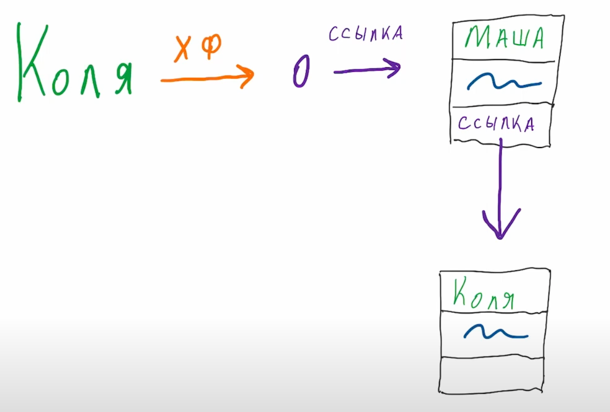 Коля
ХФ
0
ССЫЛКА
МАША
ССЫЛКА
Коля